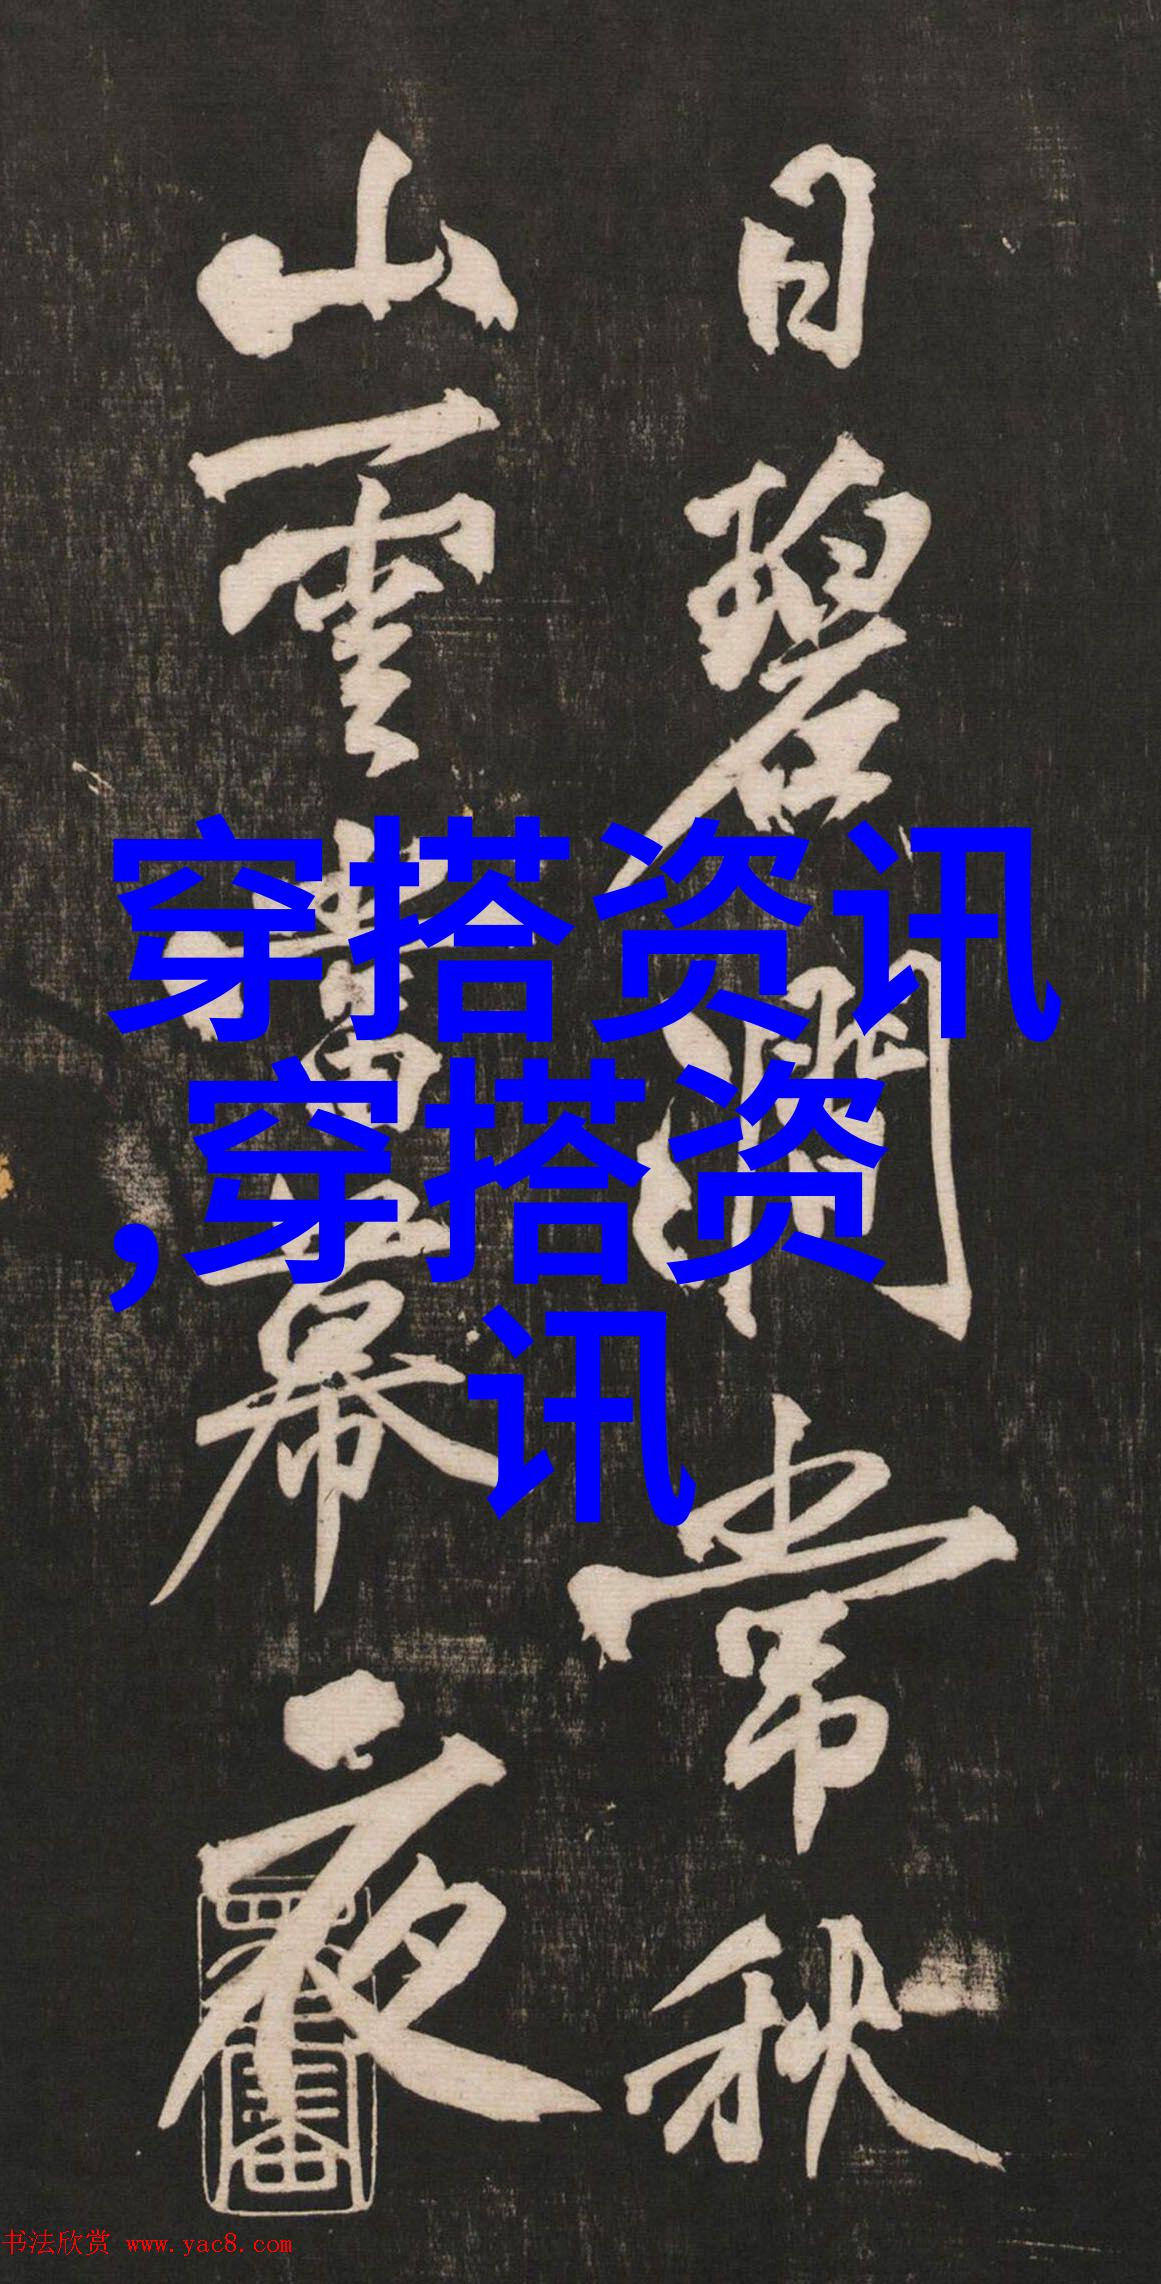 日碧澗常秋
山雲當幕夜
穿搭资讯
,穿搭资
讯
书法欣赏 www.yac8.com